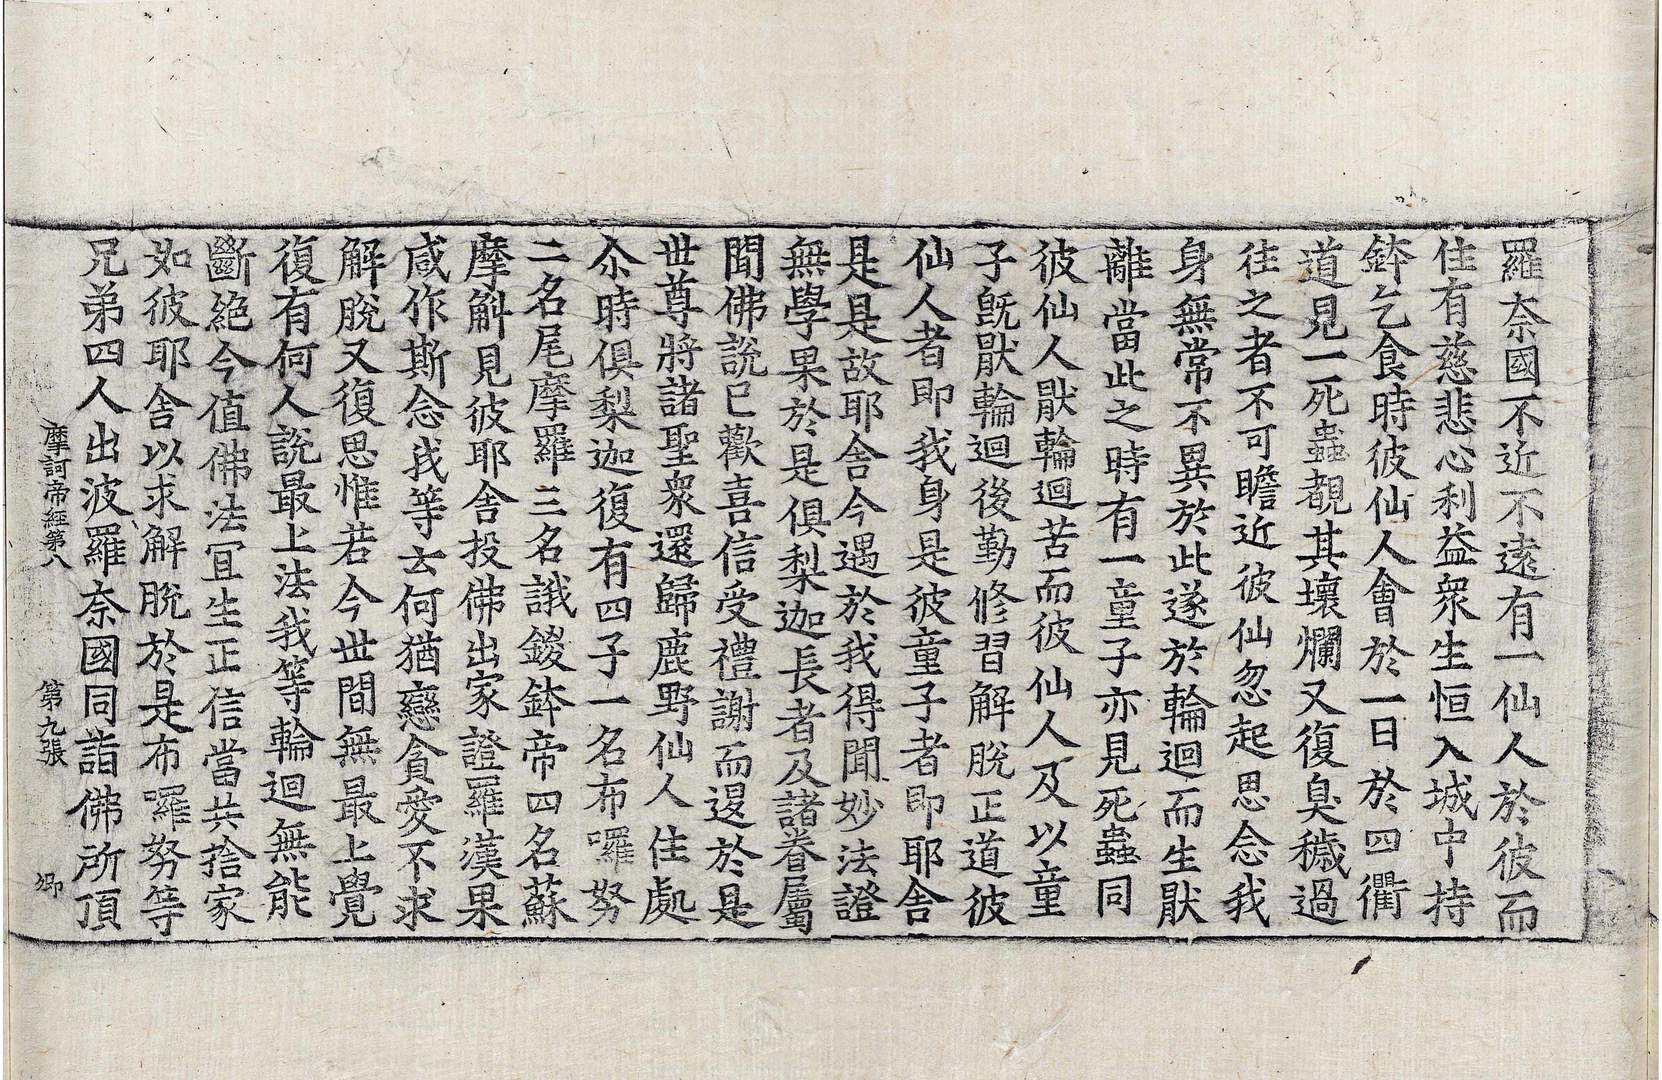 羅奈國不近不遠有一仙人於彼而
住有慈悲心利益衆生恒入城中持
鉢乞食時彼仙人會於一日於四衢
道見一死蟲覩其壞爛又復臭穢過
往之者不可瞻近彼仙忽起思念我
身無常不異於此遂於輪迴而生猒
離當此之時有一童子亦見死蟲同
彼仙人猒輪迴苦而彼仙人及以童
子旣猒輪迴後勤修習解脫正道彼
仙人者即我身是彼童子者即耶舍
是是故耶舍今遇於我得聞妙法證
無學果於是俱梨迦長者及諸眷屬
聞佛說已歡喜信受禮謝而退於是
世尊將諸聖衆還歸鹿野仙人住處
尒時俱梨迦復有四子一名布囉努
二名尾摩羅三名誐鑁鉢帝四名蘇
摩斛見彼耶舍投佛出家證羅漢果
咸作斯念我等云何猶戀貪愛不求
解脫又復思惟若今世間無最上覺
復有何人說最上法我等輪迴無能
斷絕今值佛法冝生正信當共捨家
如彼耶舍以求解脫於是布囉努等
兄弟四人出波羅奈國同詣佛所頂
摩訶帝經第八 第九張 卿